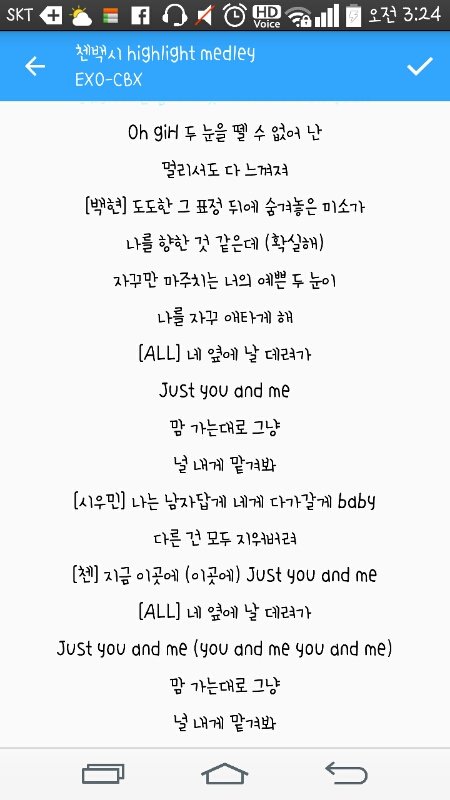 SKT HD Voice 오전 3:24
첸백시 highlight medley
EXO-CBX
Oh girl 두 눈을 뗄 수 없어 난
멀리서도 다 느껴져
[백현] 도도한 그 표정 뒤에 숨겨놓은 미소가
나를 향한 것 같은데 (확실해)
자꾸만 마주치는 너의 예쁜 두 눈이
나를 자꾸 애타게 해
[ALL] 네 옆에 날 데려가
Just you and me
맘 가는대로 그냥
널 내게 맡겨봐
[시우민] 나는 남자답게 네게 다가갈게 baby
다른 건 모두 지워버려
[첸] 지금 이곳에 (이곳에) Just you and me
[ALL] 네 옆에 날 데려가
Just you and me (you and me you and me)
맘 가는대로 그냥
널 내게 맡겨봐